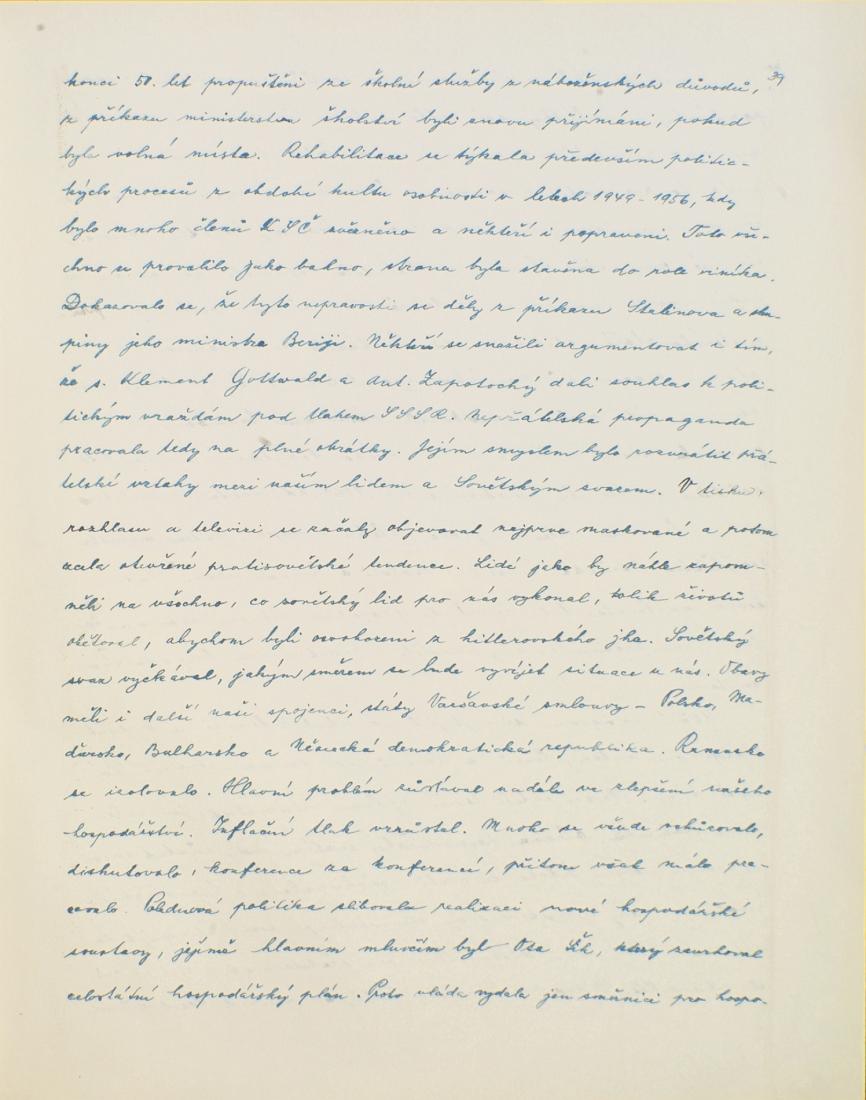 39
konci 50. let propuštěni ze školní služby z náboženských důvodů,
z příkazu ministerstva školství byli znovu přijímáni, pokud
byla volná místa. Rehabilitace se týkala především politic-
kých procesů z období kultu osobnosti v letech 1949 - 1956, kdy
bylo mnoho členů KSČ zavřeno a někteří i popraveni. Toto vše-
chno se provalilo jako bahno, strana byla stavěna do role viníka.
Dokazovalo se, že tyto nepravosti se děly z příkazu Stalinova a sku-
piny jeho ministra Beriji. Někteří se snažili argumentovat i tím,
že s. Klement Gottwald a Ant. Zápotocký dali souhlas k poli-
tickým vraždám pod tlakem SSSR. Nepřátelská propaganda
pracovala tedy na plné obrátky. Jejím smyslem bylo rozvrátit přá-
telské vztahy mezi naším lidem a Sovětským svazem. V tisku,
rozhlasu a televizi se začaly objevovat nejprve maskované a potom
zcela otevřené protisovětské tendence. Lidé jako by náhle zapom-
něli na všechno, co sovětský lid pro nás vykonal, kolik životů
obětoval, abychom byli osvobozeni z hitlerovského jha. Sovětský
svaz vyčkával, jakým směrem se bude vyvíjet situace u nás. Obavy
měli i další naši spojenci, státy Varšavské smlouvy - Polsko, Ma-
ďarsko, Bulharsko a Německá demokratická republika. Rumunsko
se izolovalo. Hlavní problém zůstával nadále ve zlepšení našeho
hospodářství. Inflační tlak vzrůstal. Mnoho se všude schůzovalo,
diskutovalo, konference za konferencí, přitom však málo pra-
covalo. Polednová politika slibovala realizaci nové hospodářské
soustavy, jejímž hlavním mluvčím byl Ota Šik, který zavrhoval
celostátní hospodářský plán. Proto vláda vydala jen směrnici pro hospo-